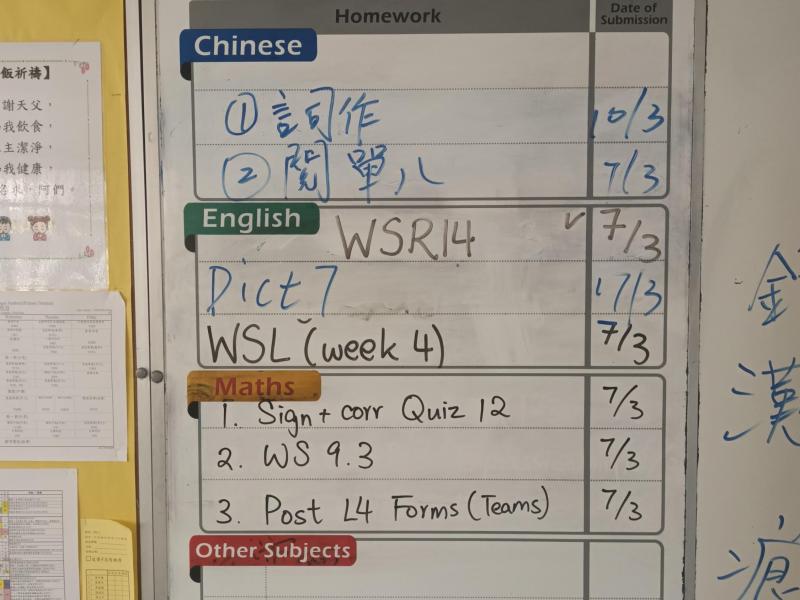 飯祈禱】
謝天父，
我飲食，
主潔淨，
我健康，
阿們。
Homework
Date of Submission
Chinese
① 詞作 10/3
② 閱單八 7/3
English
WSR14 ✓ 7/3
Dict 7 17/3
WSL (week 4) 7/3
Maths
1. Sign + corr Quiz 12 7/3
2. WS 9.3 7/3
3. Post L4 Forms (Teams) 7/3
Other Subjects
漢